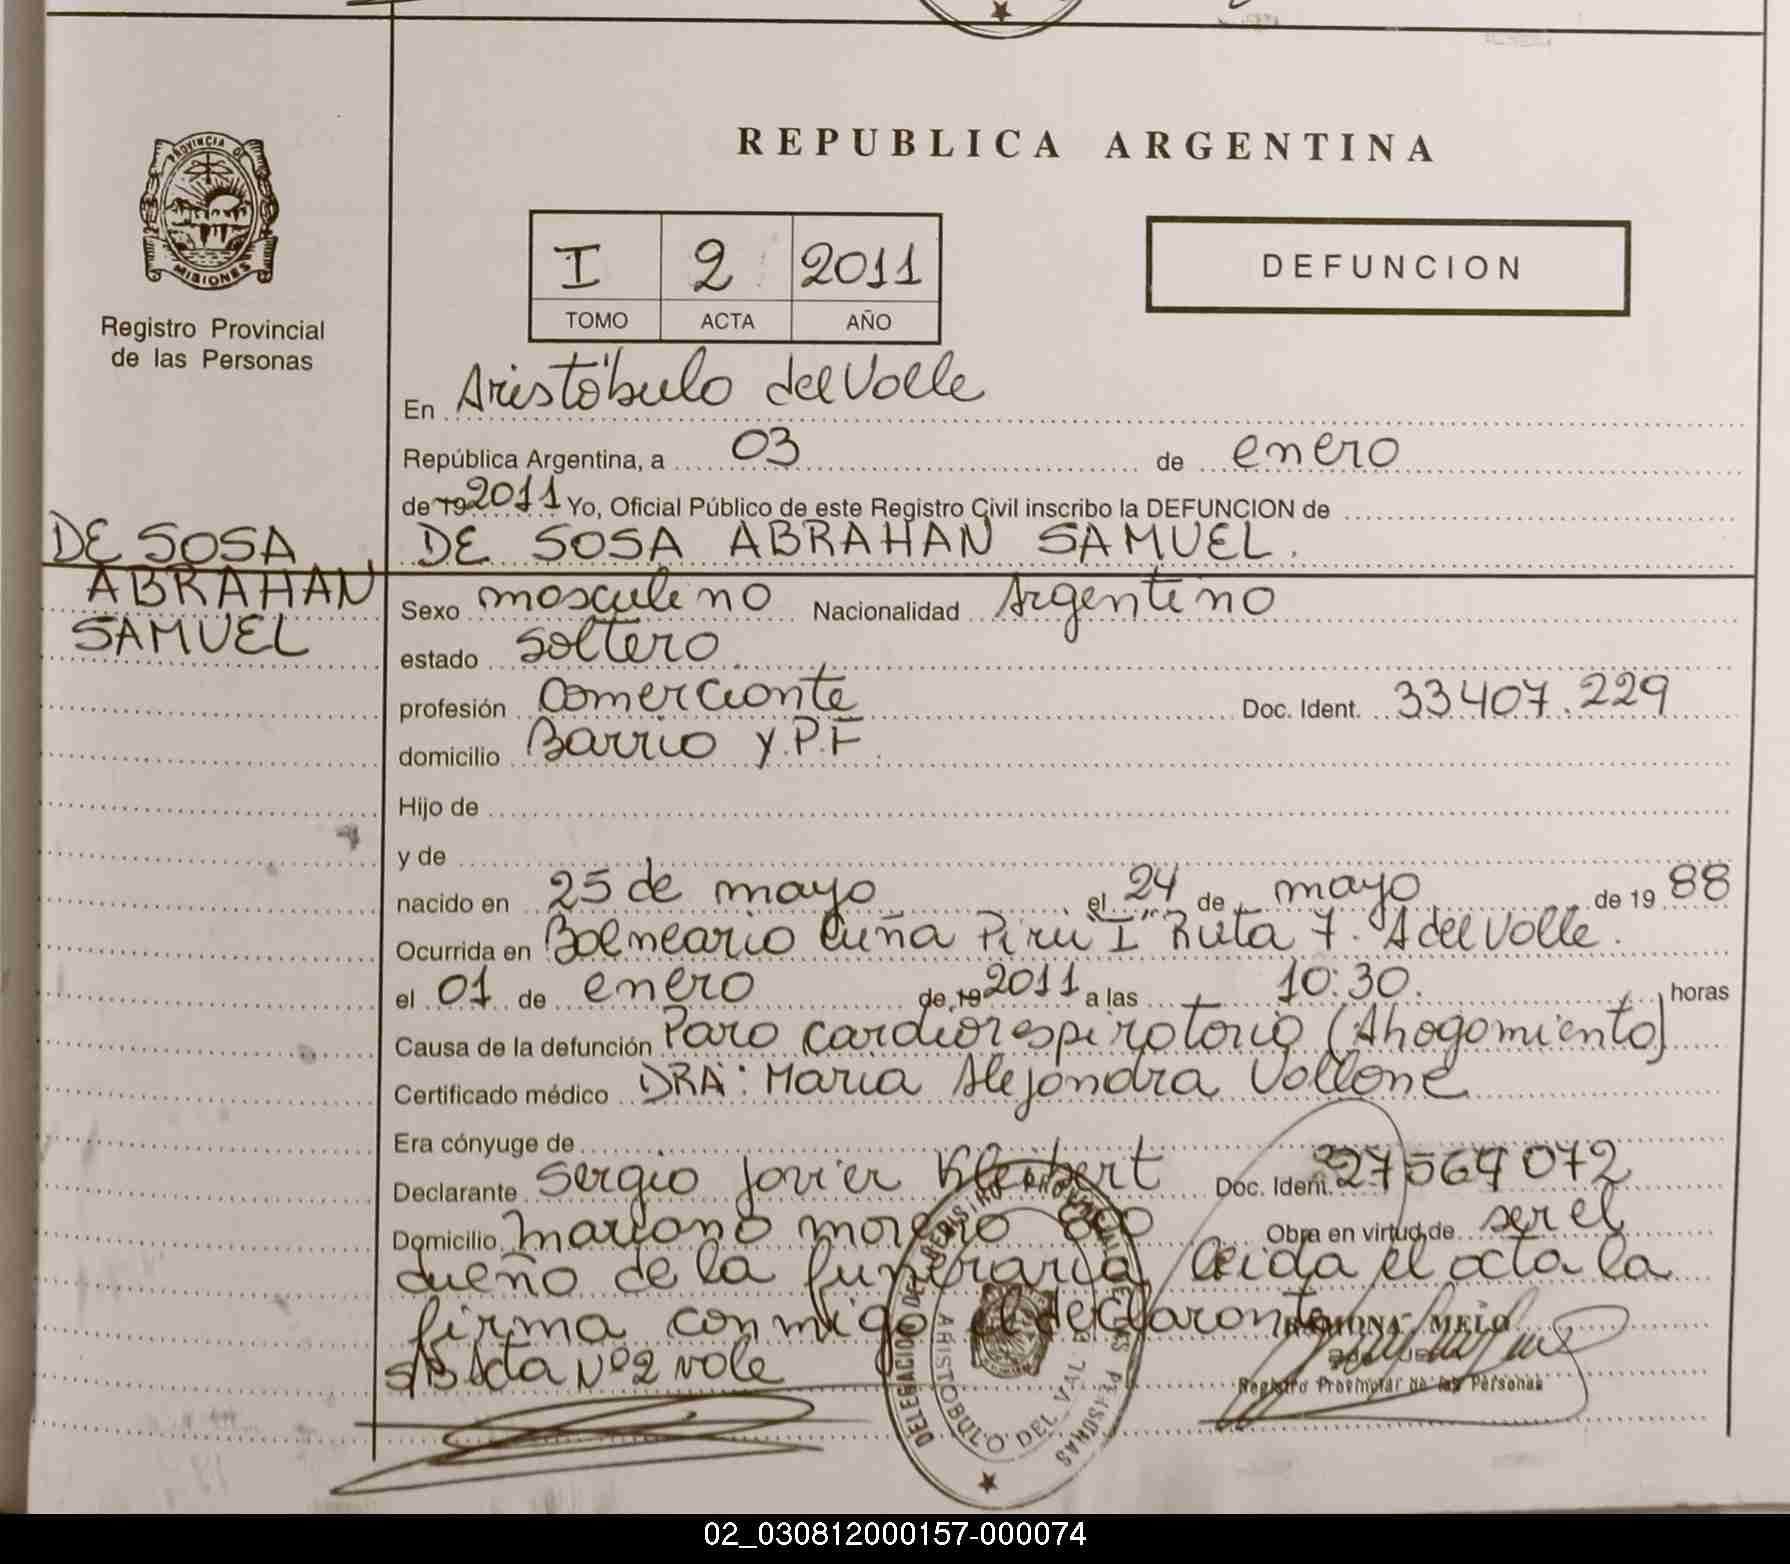 REPUBLICA ARGENTINA
PROVINCIA DE
MISIONES
Registro Provincial
de las Personas
I 2 2011
TOMO ACTA AÑO
DEFUNCION
En Aristóbulo del Valle
República Argentina, a 03 de enero
de 19 2011 Yo, Oficial Público de este Registro Civil inscribo la DEFUNCION de
DE SOSA ABRAHAN SAMUEL.
DE SOSA
ABRAHAN
SAMUEL
Sexo masculino Nacionalidad Argentino
estado soltero
profesión Comerciante Doc. Ident. 33407.229
domicilio Barrio Y.P.F.
Hijo de
y de
nacido en 25 de mayo el 24 de mayo de 19 88
Ocurrida en Balneario Cuña Pirú "I" Ruta 7. A del Valle.
el 01 de enero de 19 2011 a las 10:30. horas
Causa de la defunción Paro cardiorespiratorio (Ahogamiento)
Certificado médico DRA: Maria Alejandra Vallone
Era cónyuge de
Declarante Sergio Javier Doc. Ident. 27564072
Domicilio Mariano moreno Obra en virtud de ser el
dueño de la funeraria leida el acta la
firma conmigo el declarante
S/B Acta Nº 2 vale
RAMONA MELO
Registro Provincial de las Personas
DELEGACION DEL REGISTRO PROVINCIAL DE LAS PERSONAS
ARISTOBULO DEL VALLE
02_030812000157-000074